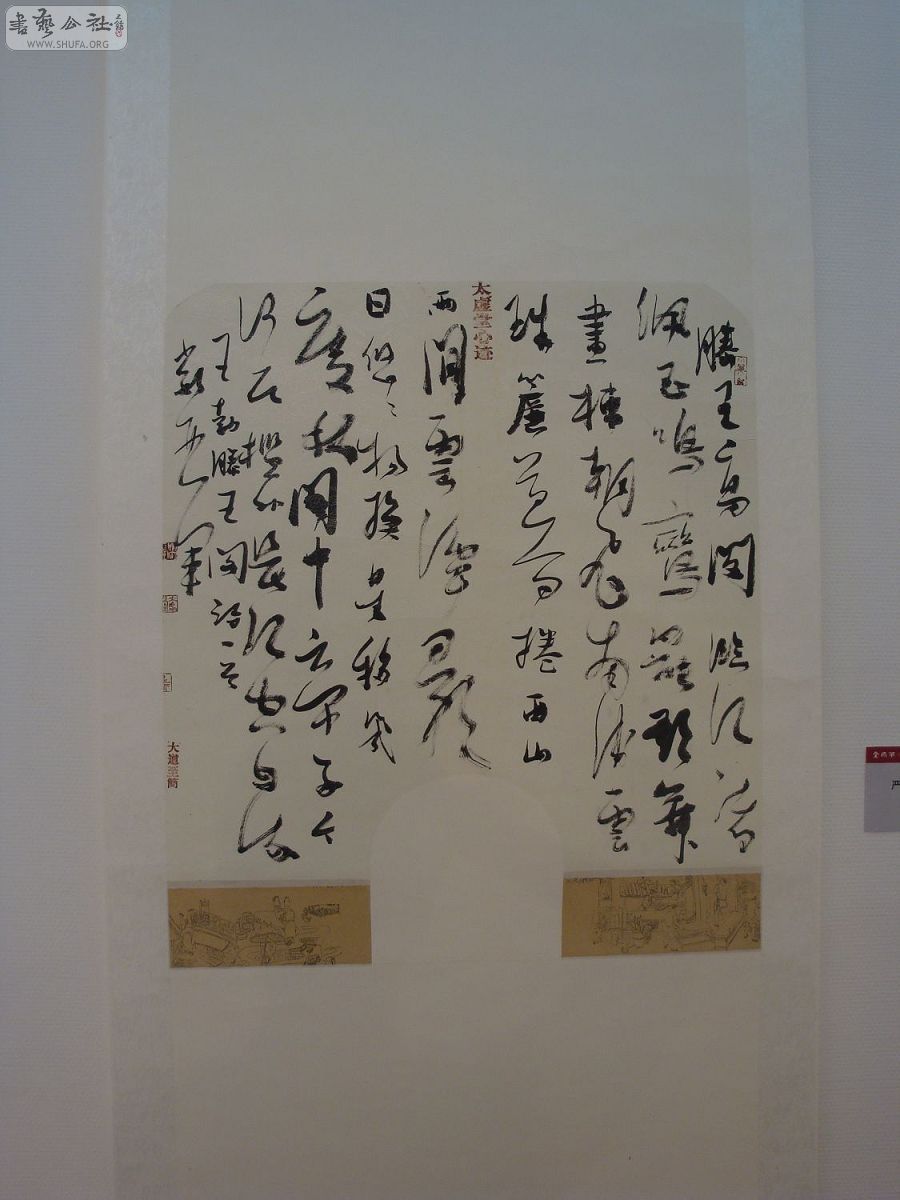 書藝公社
WWW.SHUFA.ORG
滕王高閣臨江渚
佩玉鳴鸞罷歌舞
畫棟朝飛南浦雲
珠簾暮捲西山
雨閒雲潭影
日悠〻物換星移幾
度秋閣中帝子今
何在檻外長江空自流
王勃滕王閣詩一首
嚴亞軍
太虛堂心迹
大道至簡
严